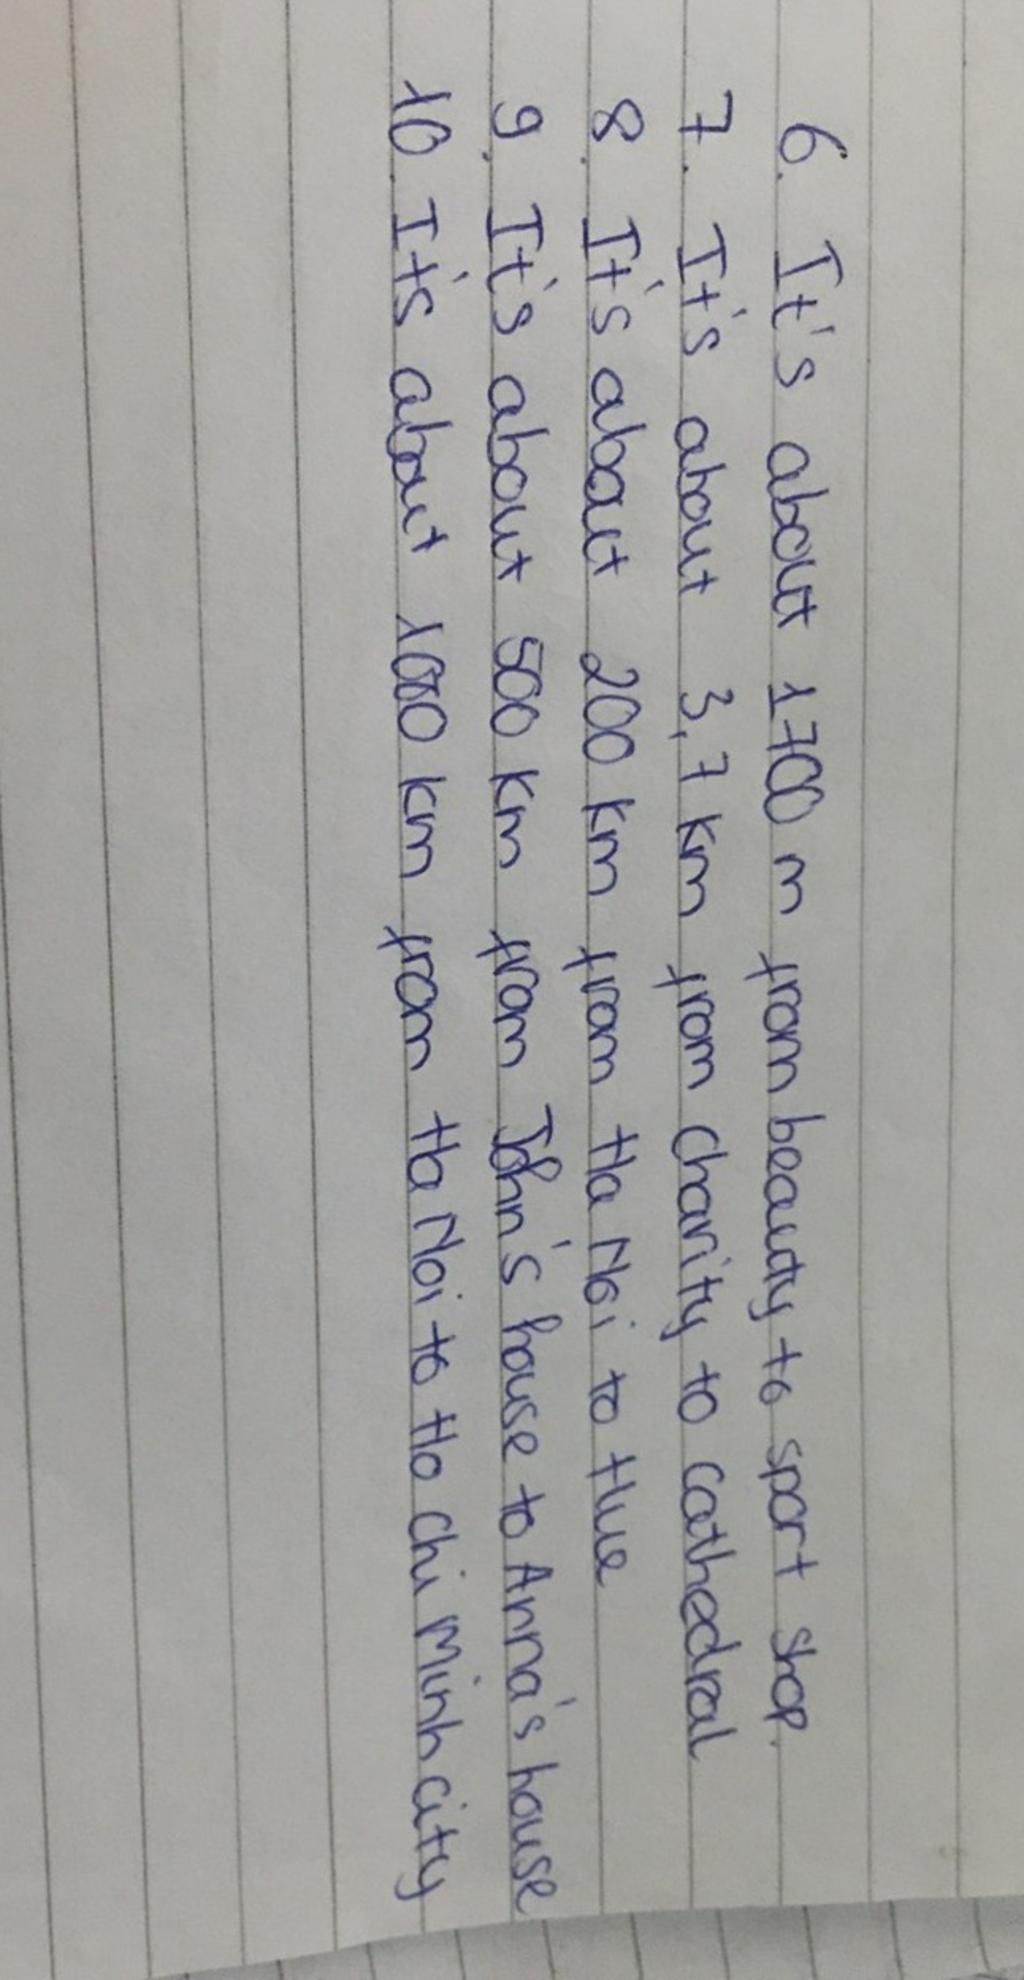 6. It's about 1700 m from beauty to sport shop.
7. It's about 3,7 km from charity to cathedral
8. It's about 200 km from Ha Noi to Hue
9. It's about 500 km from John's house to Anna's house
10. It's about 1000 km from Ha Noi to Ho Chi Minh city